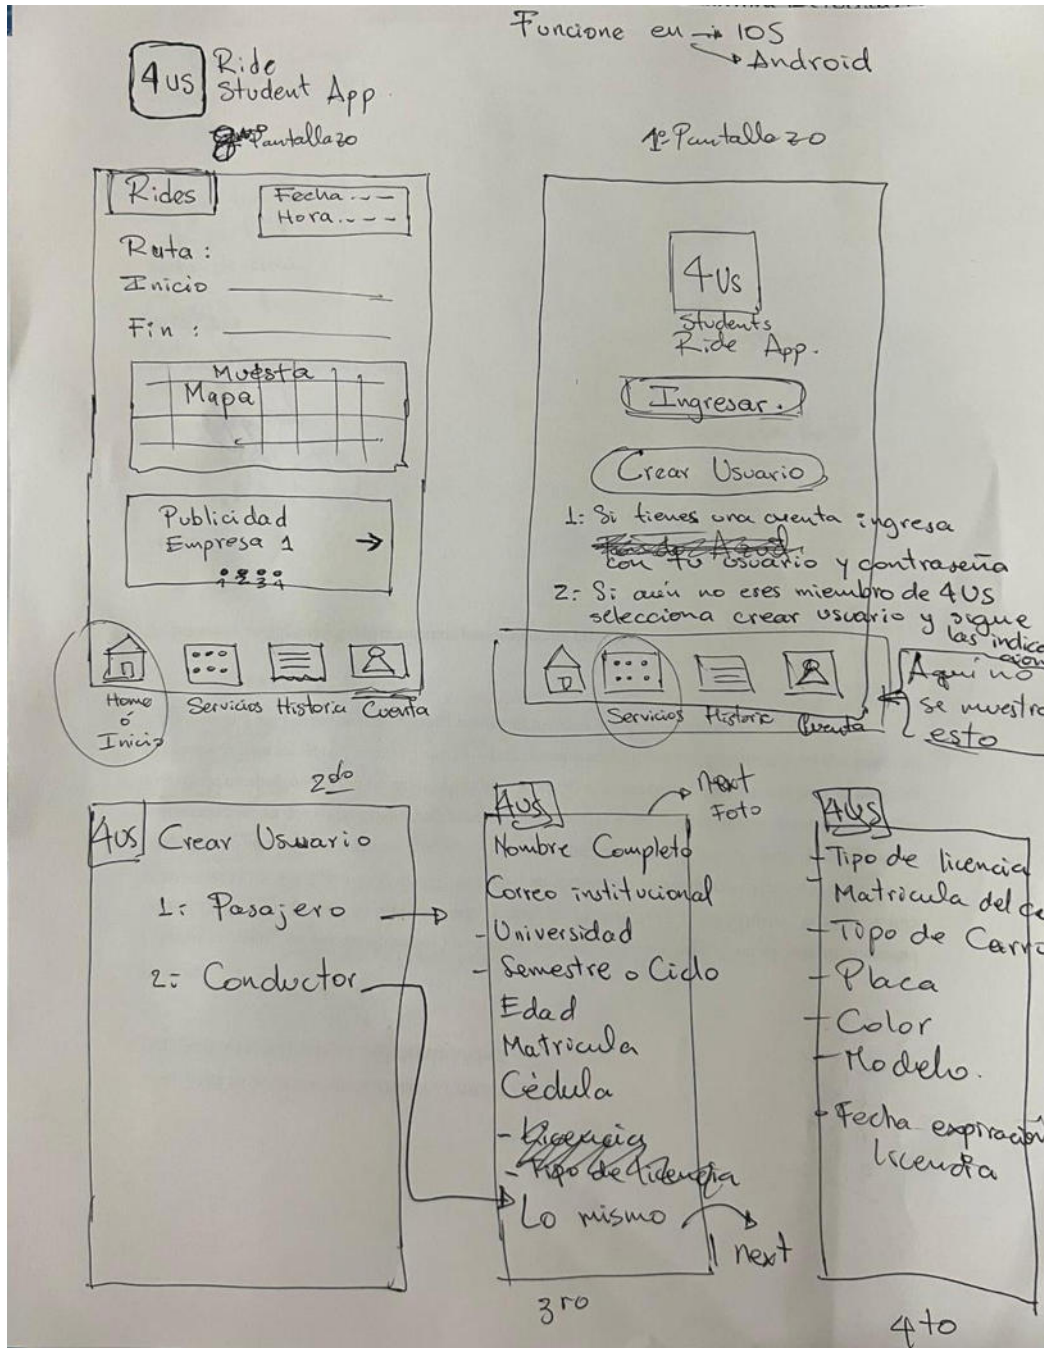 Funcione en → IOS
Android
4US
Ride
Student App.
Pantallazo
Rides
Fecha...
Hora....
Ruta:
Inicio
Fin:
Muestra
Mapa
Publicidad
Empresa 1
1 2 3 4
Home
ó
Inicio
Servicios
Historia
Cuenta
1º Pantallazo
4US
Students
Ride App.
Ingresar.
Crear Usuario
1: Si tienes una cuenta ingresa
con tu usuario y contraseña
2: Si aún no eres miembro de 4US
selecciona crear usuario y sigue
las indicaciones
Servicios
Historia
Cuenta
Aquí no
se muestra
esto
2do
4US
Crear Usuario
1: Pasajero
2: Conductor
4US
next
Foto
Nombre Completo
Correo institucional
- Universidad
- Semestre o Ciclo
Edad
Matricula
Cédula
- Licencia
- Tipo de licencia
Lo mismo
next
3ro
4US
- Tipo de licencia
Matricula del ca
- Tipo de Carro
- Placa
- Color
- Modelo.
- Fecha expiración
licencia
4to